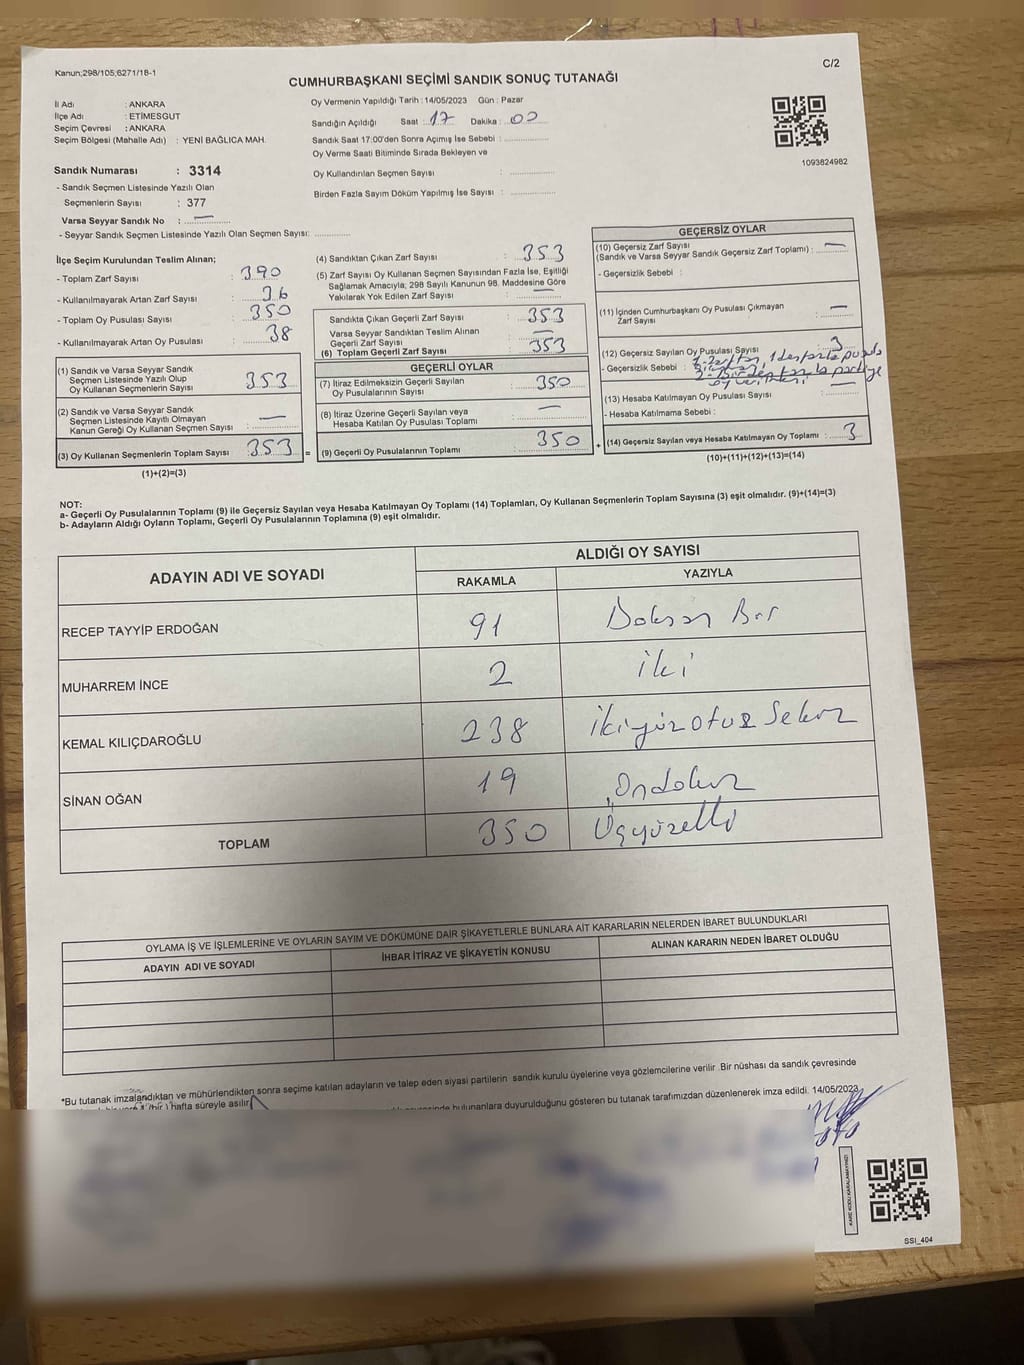 Kanun;298/105;6271/18-1
C/2
CUMHURBAŞKANI SEÇİMİ SANDIK SONUÇ TUTANAĞI
İl Adı : ANKARA
İlçe Adı : ETİMESGUT
Seçim Çevresi : ANKARA
Seçim Bölgesi (Mahalle Adı) : YENİ BAĞLICA MAH.
Oy Vermenin Yapıldığı Tarih : 14/05/2023 Gün : Pazar
Sandığın Açıldığı Saat : 17 Dakika : 00
Sandık Saat 17:00'den Sonra Açımış İse Sebebi :
Oy Verme Saati Bitiminde Sırada Bekleyen ve
Oy Kullandırılan Seçmen Sayısı :
Birden Fazla Sayım Döküm Yapılmış İse Sayısı :
1093824982
Sandık Numarası : 3314
- Sandık Seçmen Listesinde Yazılı Olan
Seçmenlerin Sayısı : 377
Varsa Seyyar Sandık No : —
- Seyyar Sandık Seçmen Listesinde Yazılı Olan Seçmen Sayısı:
İlçe Seçim Kurulundan Teslim Alınan;
- Toplam Zarf Sayısı : 390
- Kullanılmayarak Artan Zarf Sayısı : 36
- Toplam Oy Pusulası Sayısı : 350
- Kullanılmayarak Artan Oy Pusulası : 38
(1) Sandık ve Varsa Seyyar Sandık
Seçmen Listesinde Yazılı Olup
Oy Kullanan Seçmenlerin Sayısı : 353
(2) Sandık ve Varsa Seyyar Sandık
Seçmen Listesinde Kayıtlı Olmayan
Kanun Gereği Oy Kullanan Seçmen Sayısı : —
(3) Oy Kullanan Seçmenlerin Toplam Sayısı : 353
(1)+(2)=(3)
(4) Sandıktan Çıkan Zarf Sayısı : 353
(5) Zarf Sayısı Oy Kullanan Seçmen Sayısından Fazla İse, Eşitliği
Sağlamak Amacıyla; 298 Sayılı Kanunun 98. Maddesine Göre
Yakılarak Yok Edilen Zarf Sayısı : —
Sandıkta Çıkan Geçerli Zarf Sayısı : 353
Varsa Seyyar Sandıktan Teslim Alınan
Geçerli Zarf Sayısı : —
(6) Toplam Geçerli Zarf Sayısı : 353
GEÇERLİ OYLAR
(7) İtiraz Edilmeksizin Geçerli Sayılan
Oy Pusulalarının Sayısı : 350
(8) İtiraz Üzerine Geçerli Sayılan veya
Hesaba Katılan Oy Pusulası Toplamı : —
= (9) Geçerli Oy Pusulalarının Toplamı : 350
GEÇERSİZ OYLAR
(10) Geçersiz Zarf Sayısı
(Sandık ve Varsa Seyyar Sandık Geçersiz Zarf Toplamı) : —
- Geçersizlik Sebebi :
(11) İçinden Cumhurbaşkanı Oy Pusulası Çıkmayan
Zarf Sayısı : —
(12) Geçersiz Sayılan Oy Pusulası Sayısı : 3
- Geçersizlik Sebebi :
(13) Hesaba Katılmayan Oy Pusulası Sayısı : —
- Hesaba Katılmama Sebebi :
+ (14) Geçersiz Sayılan veya Hesaba Katılmayan Oy Toplamı : 3
(10)+(11)+(12)+(13)=(14)
NOT:
a- Geçerli Oy Pusulalarının Toplamı (9) ile Geçersiz Sayılan veya Hesaba Katılmayan Oy Toplamı (14) Toplamları, Oy Kullanan Seçmenlerin Toplam Sayısına (3) eşit olmalıdır. (9)+(14)=(3)
b- Adayların Aldığı Oyların Toplamı, Geçerli Oy Pusulalarının Toplamına (9) eşit olmalıdır.
ADAYIN ADI VE SOYADI
ALDIĞI OY SAYISI
RAKAMLA YAZIYLA
RECEP TAYYİP ERDOĞAN 91 Doksan Bir
MUHARREM İNCE 2 iki
KEMAL KILIÇDAROĞLU 238 ikiyüz otuz Sekiz
SİNAN OĞAN 19 Ondokuz
TOPLAM 350 Üçyüzelli
OYLAMA İŞ VE İŞLEMLERİNE VE OYLARIN SAYIM VE DÖKÜMÜNE DAİR ŞİKAYETLERLE BUNLARA AİT KARARLARIN NELERDEN İBARET BULUNDUKLARI
ADAYIN ADI VE SOYADI İHBAR İTİRAZ VE ŞİKAYETİN KONUSU ALINAN KARARIN NEDEN İBARET OLDUĞU
*Bu tutanak imzalandıktan ve mühürlendikten sonra seçime katılan adayların ve talep eden siyasi partilerin sandık kurulu üyelerine veya gözlemcilerine verilir .Bir nüshası da sandık çevresinde
(bir ) hafta süreyle asılır. bulunanlara duyurulduğunu gösteren bu tutanak tarafımızdan düzenlenerek imza edildi. 14/05/2023
KARE KODU KARALAMAYINIZ!
SSI_404